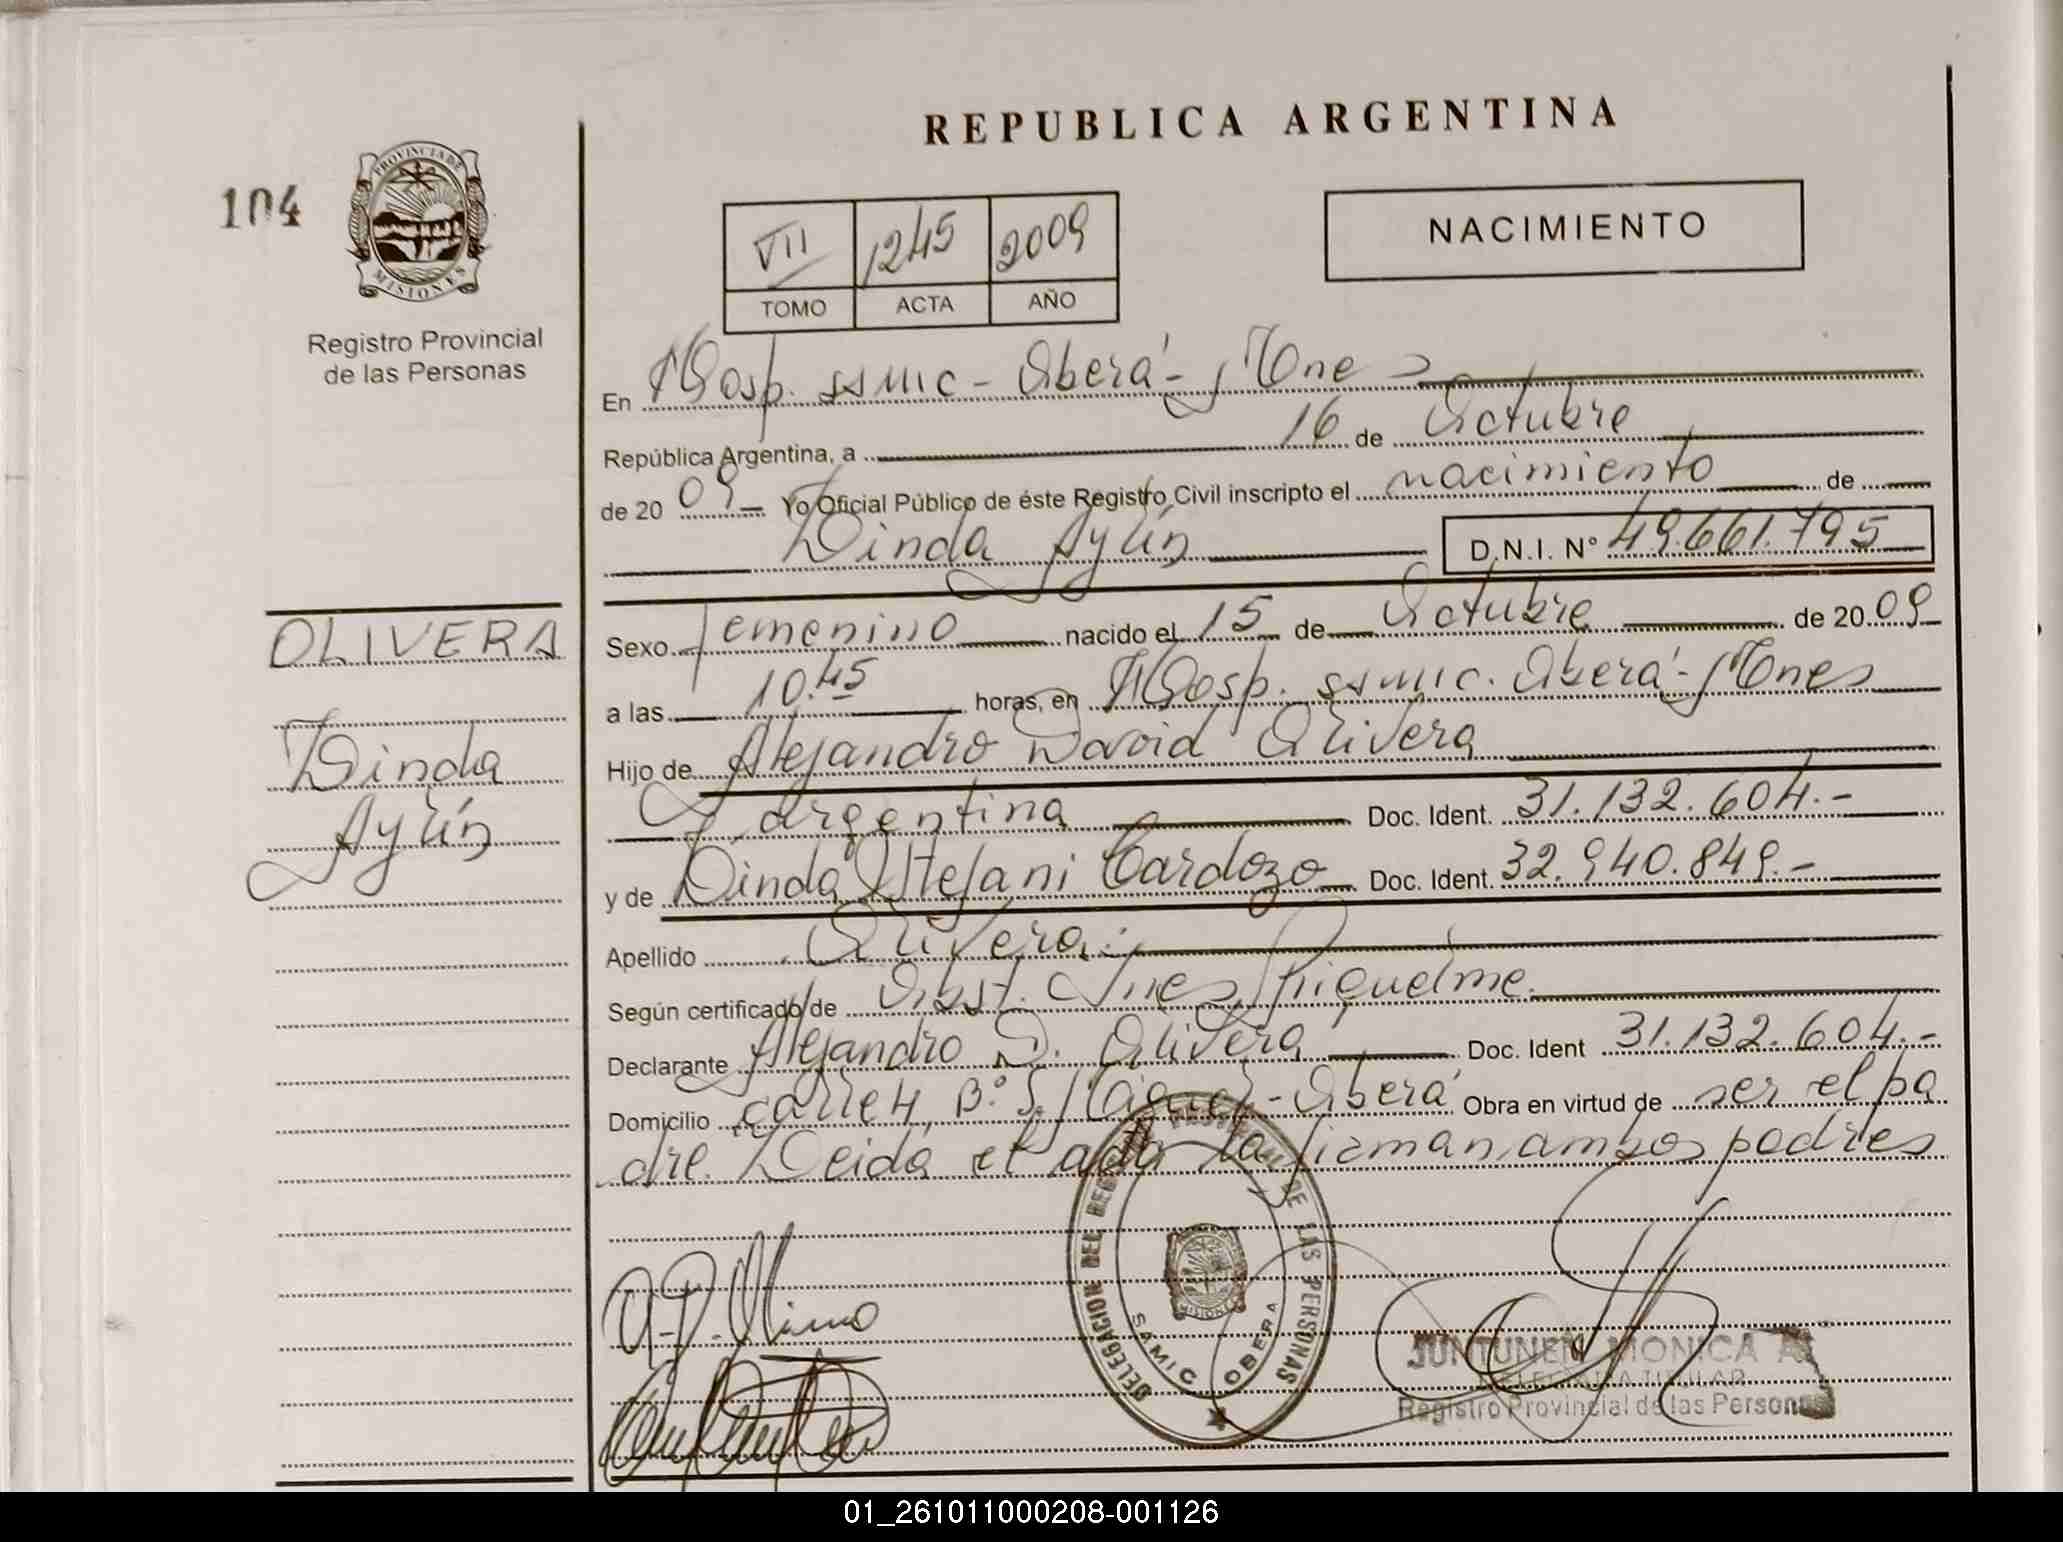 REPUBLICA ARGENTINA
104
PROVINCIA DE
MISIONES
Registro Provincial
de las Personas
VII 1245 2009
TOMO ACTA AÑO
NACIMIENTO
En Hosp. SAMIC - Oberá - Mnes
República Argentina, a 16 de Octubre
de 2009 Yo Oficial Público de éste Registro Civil inscripto el nacimiento de
Linda Aylín D.N.I. Nº 49.661.795
OLIVERA
Linda
Aylín
Sexo femenino nacido el 15 de Octubre de 2009
a las 10.45 horas, en Hosp. SAMIC. Oberá - Mnes
Hijo de Alejandro David Olivera
argentina Doc. Ident. 31.132.604.-
y de Linda Stefani Cardozo Doc. Ident. 32.940.849.-
Apellido Olivera.
Según certificado de Obst. Ines Riquelme.
Declarante Alejandro D. Olivera Doc. Ident 31.132.604.-
Domicilio calle 4, Bº S. Miguel - Oberá Obra en virtud de ser el pa
dre. Leida el acta la firman ambos padres
DELEGACION DEL REGISTRO DE LAS PERSONAS
MISIONES
SAMIC OBERA
JUNTUNEN MONICA A.
DELEGADA TITULAR
Registro Provincial de las Personas
01_261011000208-001126